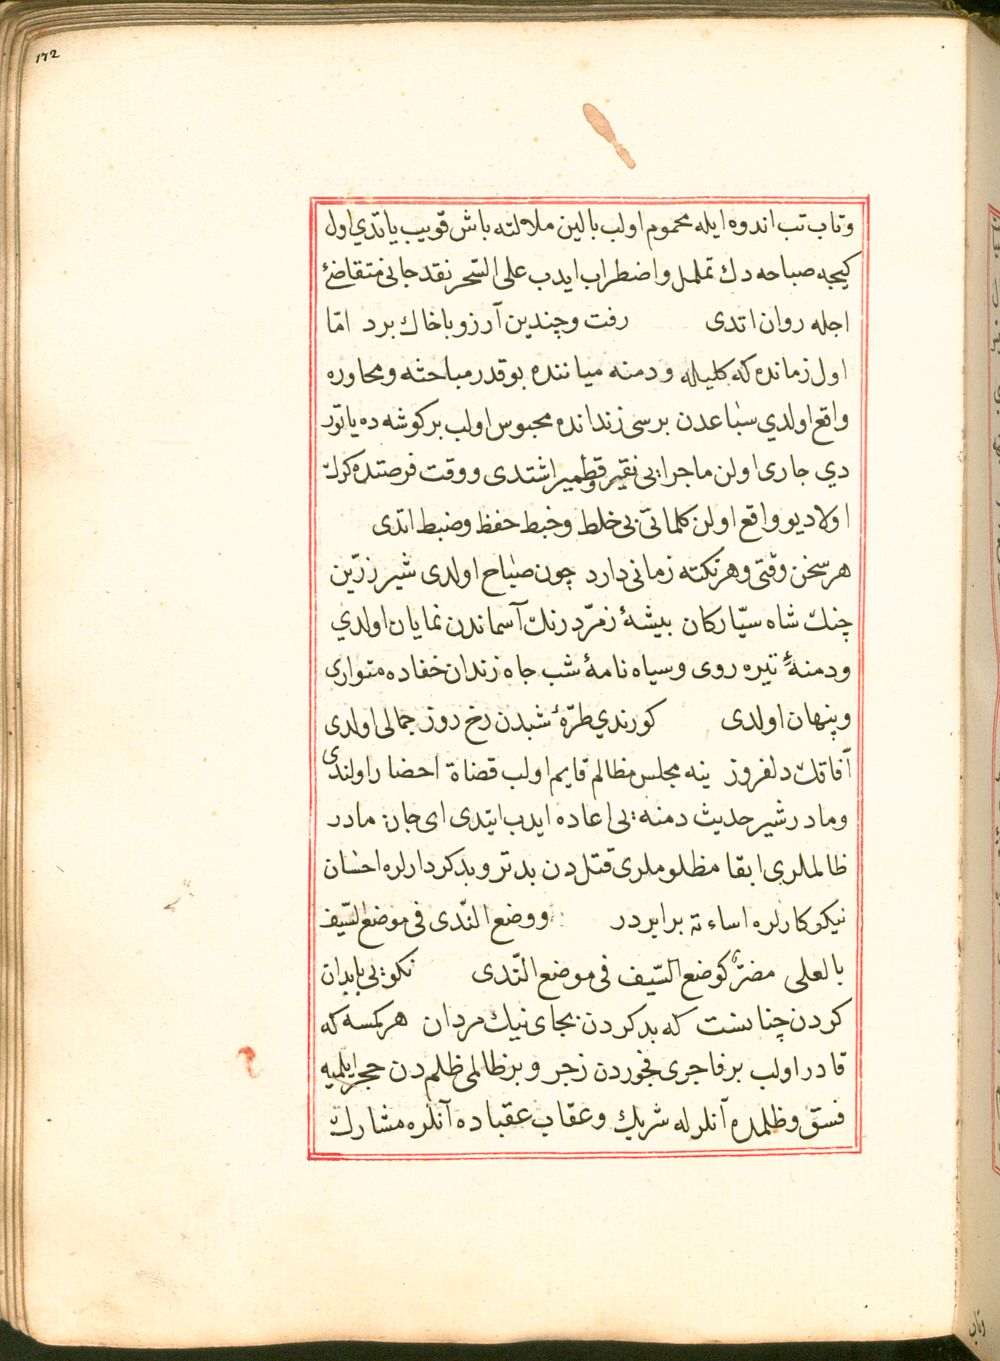 ١٧٢
وتاب تب اندوه ايله محموم اولب بالين ملالته باش قويب ياتدي اول
كيجه صباحه دك تململ واضطراب ايدب على السّحر نقد جانى متقاضئ
اجله روان اتدى رفت وچندين آرزو با خاك برد امّا
اول زمانده كه كليله ودمنه مياننده بو قدر مباحثه ومحاوره
واقع اولدي سباعدن برسى زندانده محبوس اولب بر كوشه ده ياتور
دي جارى اولن ماجرايى نقير وقطمير اشتدى ووقت فرصتده كرك
اولا ديو واقع اولن كلماتى بى خلط وخبط حفظ وضبط اتدى
هر سخن وقتى وهر نكته زمانى دارد چون صباح اولدى شير زرّين
چنك شاه سيّاركان بيشۀ زمرّد رنك آسماندن نمايان اولدي
ودمنۀ تيره روى وسياه نامۀ شب چاه زندان خفاده متوارى
وپنهان اولدى كورندي طرّۀ شبدن رخ روز جمالى اولدى
آفاقك دلفروز ينه مجلس مظالم قايم اولب قضاة احضار اولندى
ومادر شير حديث دمنه يى اعاده ايدب ايتدى اى جان مادر
ظالملرى ابقا مظلوملرى قتل دن بدتر وبدكردارلره احسان
نيكوكارلره اساءته برابردر ووضع النّدى فى موضع السّيف
بالعلى مضرّ كوضع السّيف فى موضع النّدى نكويى با بدان
كردن چنانست كه بد كردن بجاى نيك مردان هر كمسه كه
قادر اولب بر فاجرى فجوردن زجر وبر ظالمى ظلم دن حجر ايلميه
فسق وظلمده آنلرله شريك وعقاب عقباده آنلره مشارك
وتاب